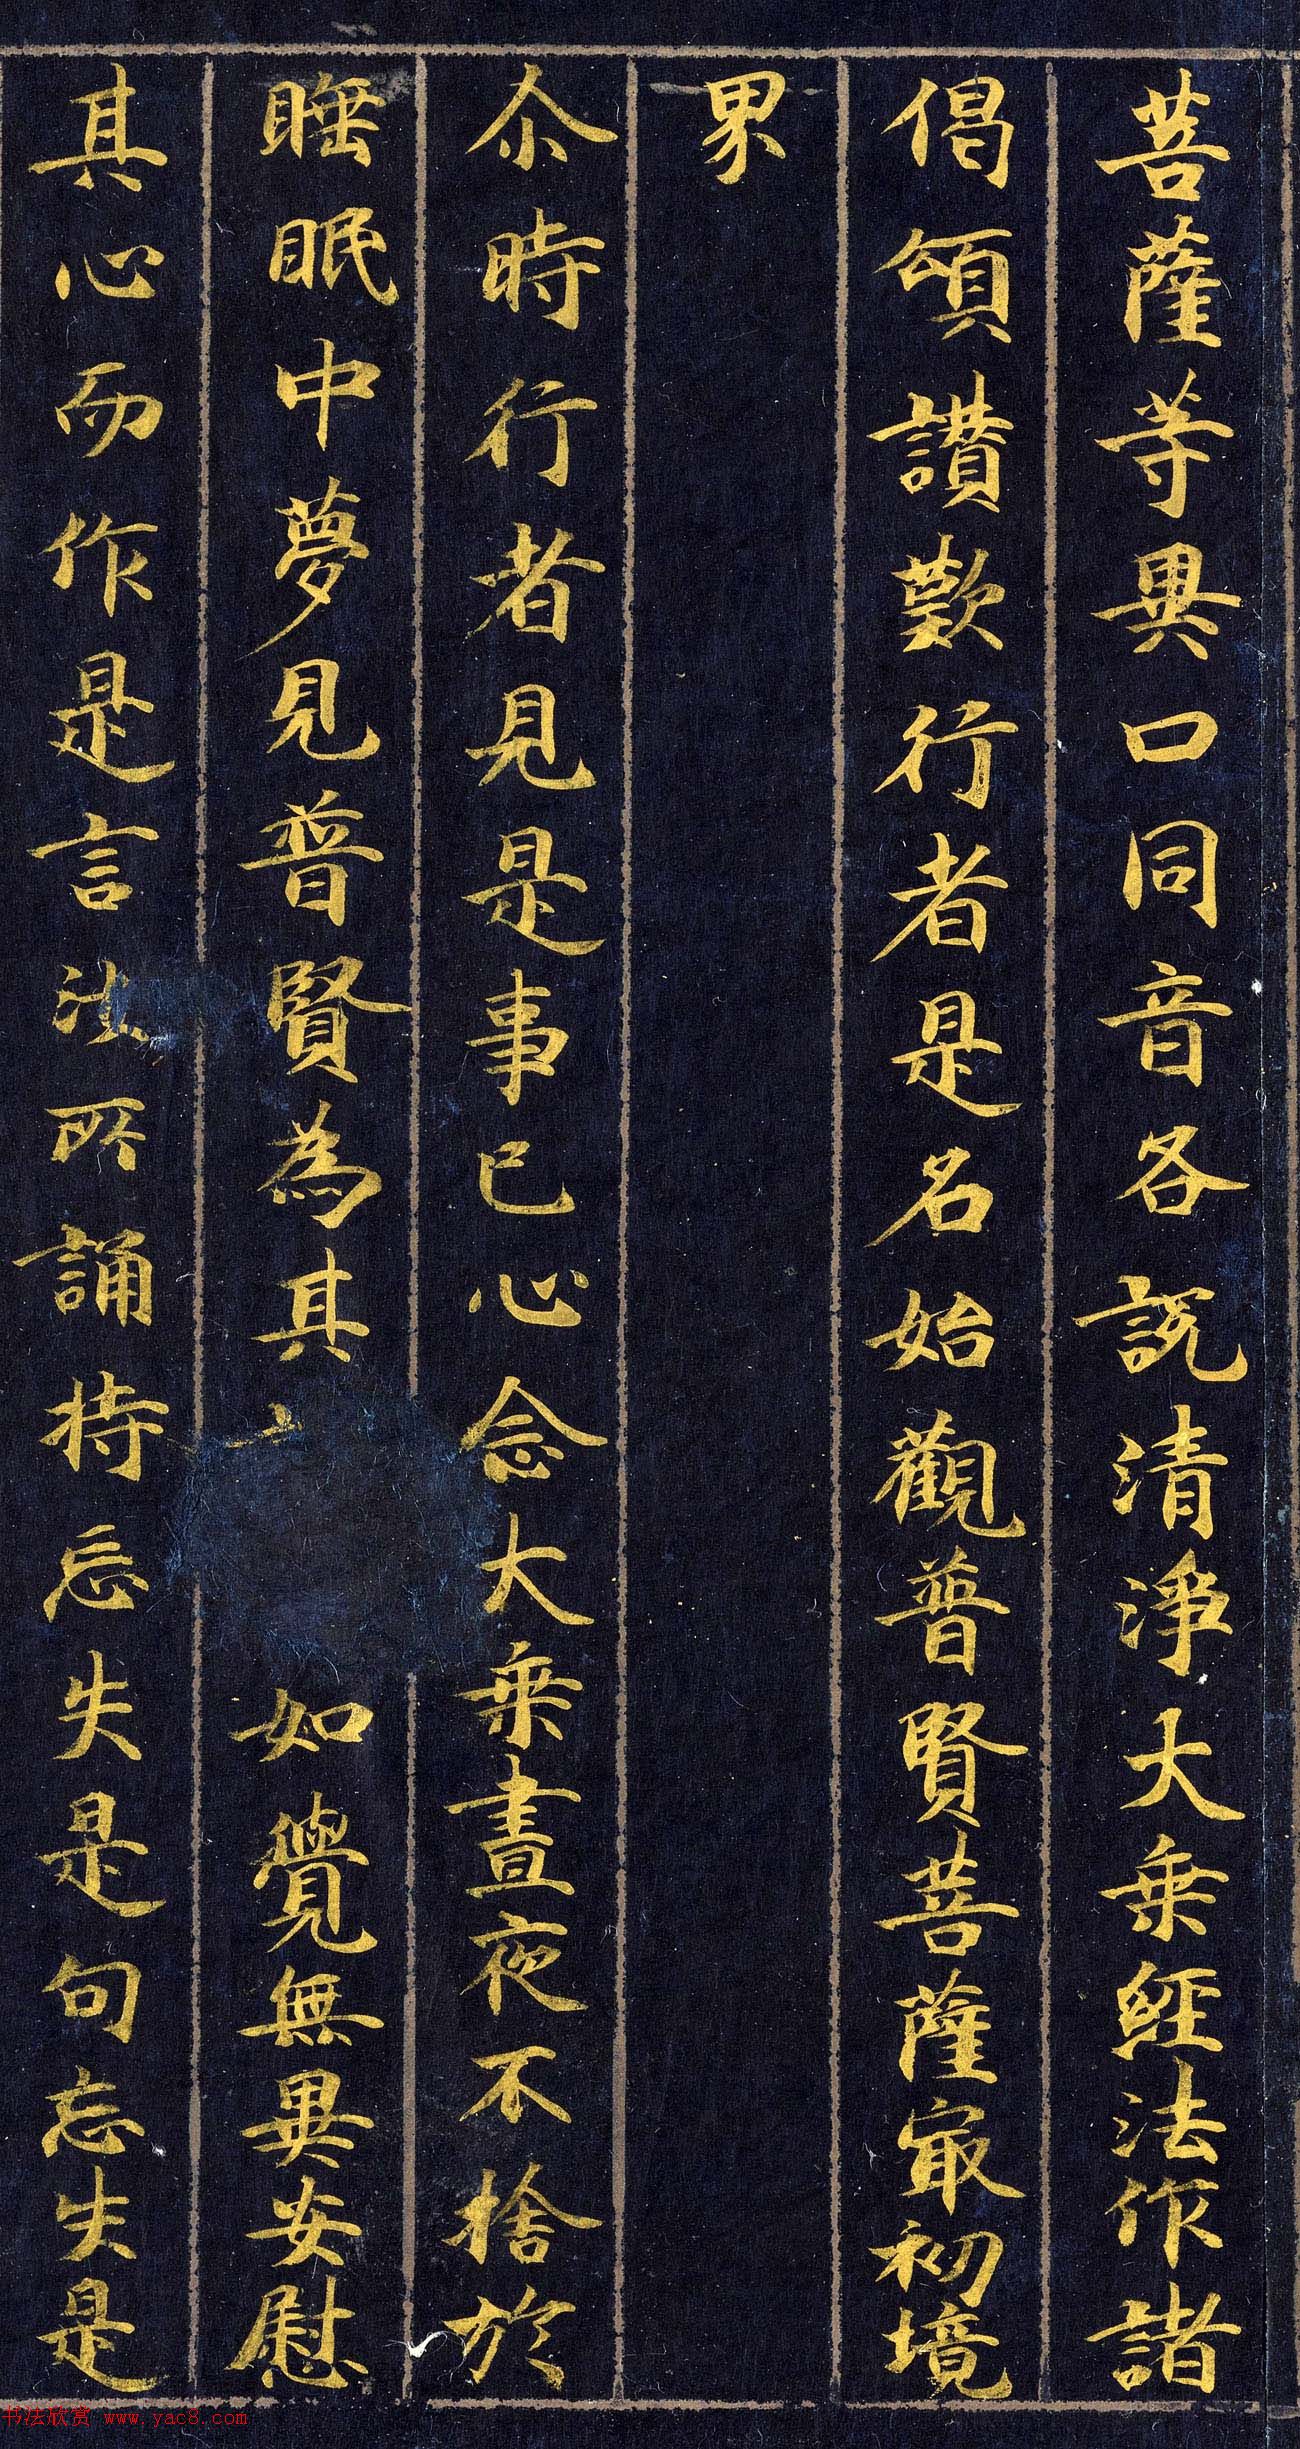 菩薩等異口同音各說清淨大乗經法作諸
偈頌讃歎行者是名始觀普賢菩薩冣初境
界
尒時行者見是事已心念大乗晝夜不捨於
睡眠中夢見普賢為其如覺無異安慰
其心而作是言汝所誦持忘失是句忘失是
书法欣赏 www.yac8.com